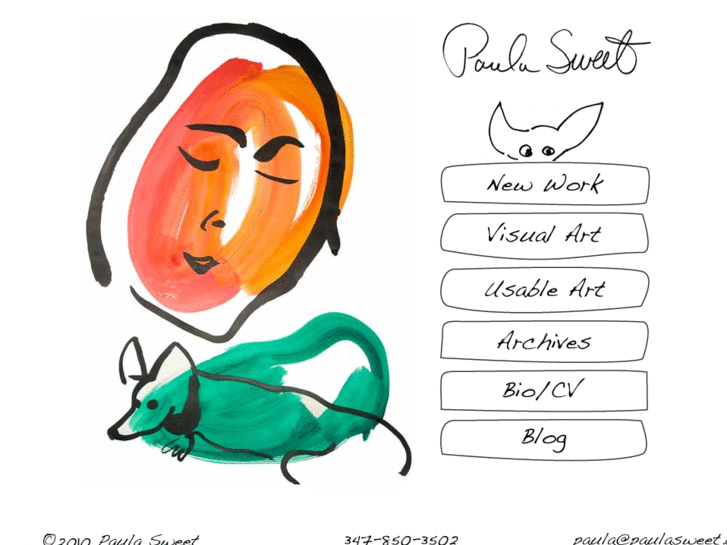 Paula Sweet
New Work
Visual Art
Usable Art
Archives
Bio/CV
Blog
©2010 Paula Sweet 347-850-3502 paula@paulasweet.